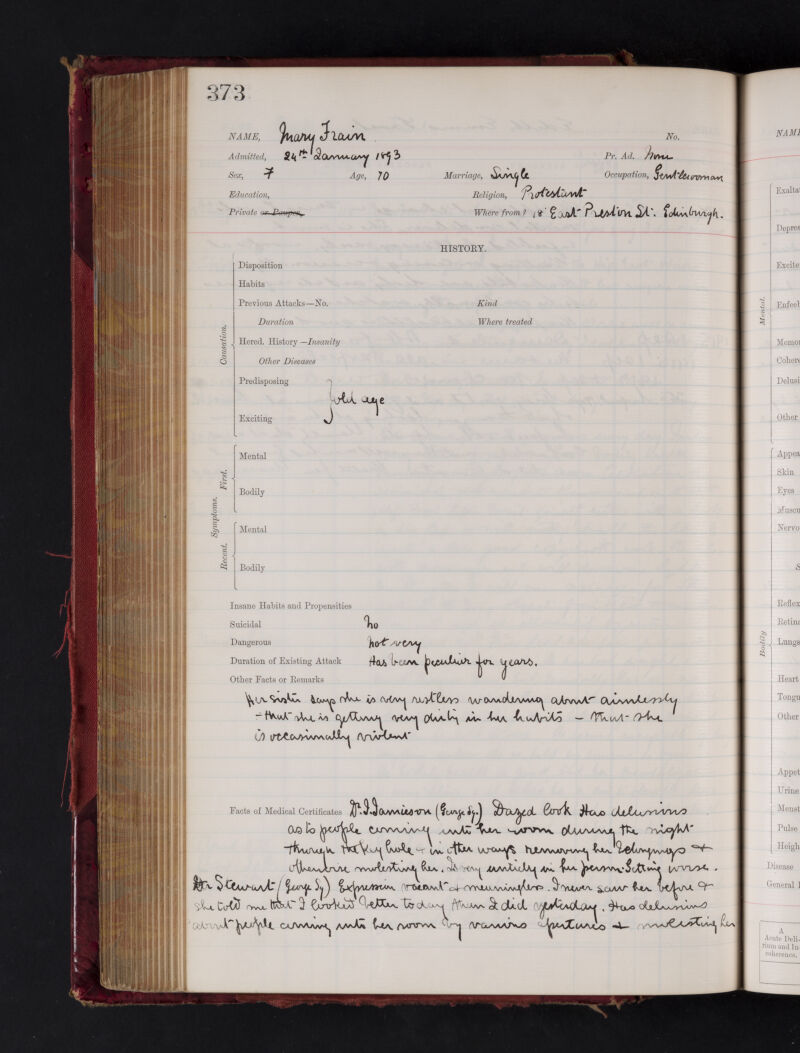 373
NAME, Mary Frain No.
Admitted, 24th January 1893 Pr. Ad. None
Sex, F Age, 70 Marriage, Single Occupation, Gentlewoman
Education, Religion, Protestant
Private or Pauper, Where from? 18 East Preston St. Edinburgh.
HISTORY.
Disposition
Habits
Previous Attacks—No. Kind
Duration Where treated
Hered. History—Insanity
Other Diseases
Causation.
Predisposing
old age
Exciting
Mental
First.
Bodily
Symptoms.
Mental
Recent.
Bodily
Insane Habits and Propensities
Suicidal no
Dangerous not very
Duration of Existing Attack Has been peculiar for years.
Other Facts or Remarks
Her sister says she is very restless wandering about aimlessly
- that she is getting very dirty in her habits - that she
is occasionally violent
Facts of Medical Certificates Dr. J. Jamieson (George Sq.) Dazed look Has delusions
as to people coming into her room during the night
through the key hole & in other ways removing her belongings &
otherwise molesting her. Is very untidy in her person. Getting worse.
Dr Stewart (George Sq) Expression vacant & meaningless. I never saw her before &
she told me that I looked better today than I did yesterday. Has delusions
about people coming into her room by various apertures & molesting her
NAME
Exalta
Depres
Excite
Enfeeb
Mental.
Memor
Cohere
Delusi
Other
Appea
Skin
Eyes
Muscu
Nervo
S
Reflex
Retina
Bodily
Lungs
Heart
Tongu
Other
Appet
Urine
Menst
Pulse
Heigh
Disease
General
A
Acute Deli-
rium and In
coherence.